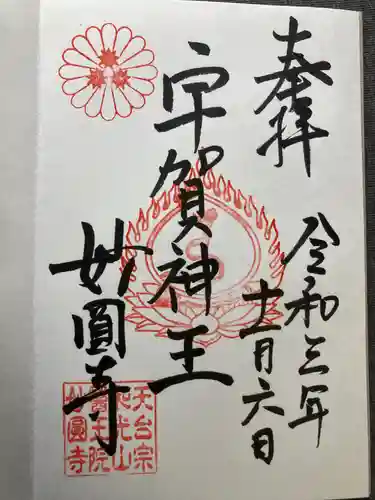 奉拝
令和三年
十一月六日
宇賀神王
妙圓寺
天台宗
光山
醫王院
妙圓寺